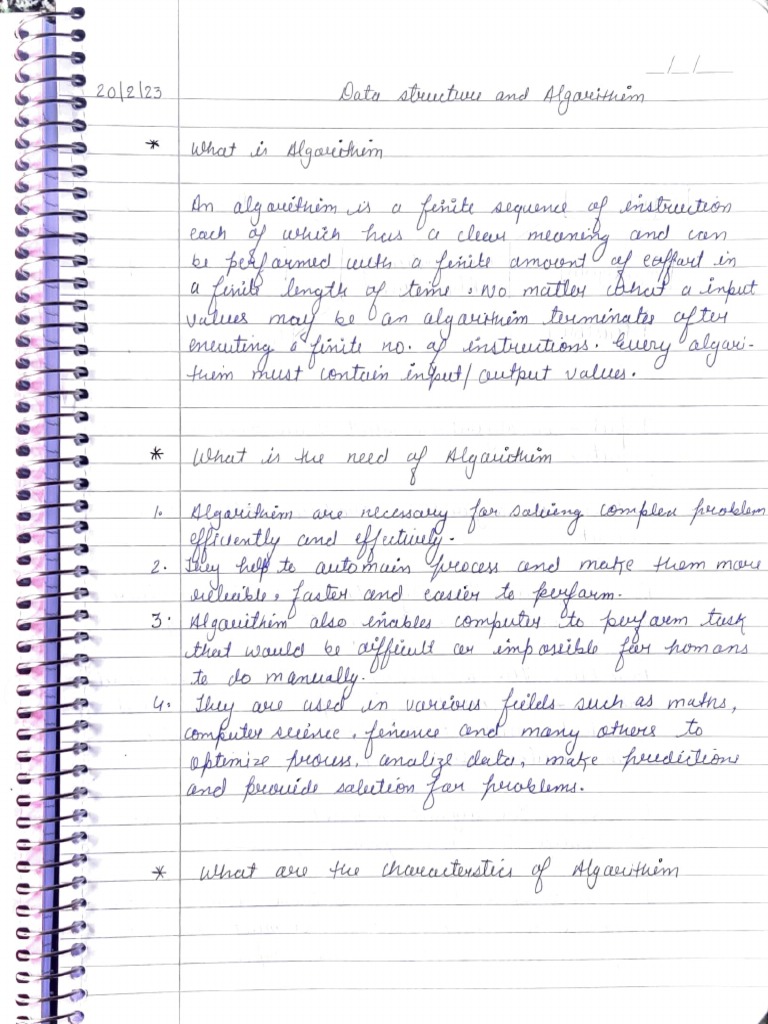 _/_/__
20/2/23 Data structure and Algorithim
* What is Algorithim
An algorithim is a finite sequence of instruction
each of which has a clear meaning and can
be performed with a finite amount of eaffort in
a finite length of time. No matter what a input
values may be an algorithim terminates after
executing a finite no. of instructions. Every algori-
them must contain input/output values.
* What is the need of Algorithim
1. Algorithim are necessary for solving complex problem
efficiently and effectively.
2. They help to automain process and make them more
relieible, faster and easier to perform.
3. Algorithim also enables computer to perform task
that would be difficult or impossible for homans
to do manually.
4. They are used in various fields such as maths,
computer science, finance and many others to
optimize process, analize data, make predictions
and provide solution for problems.
* What are the characterstics of Algorithim